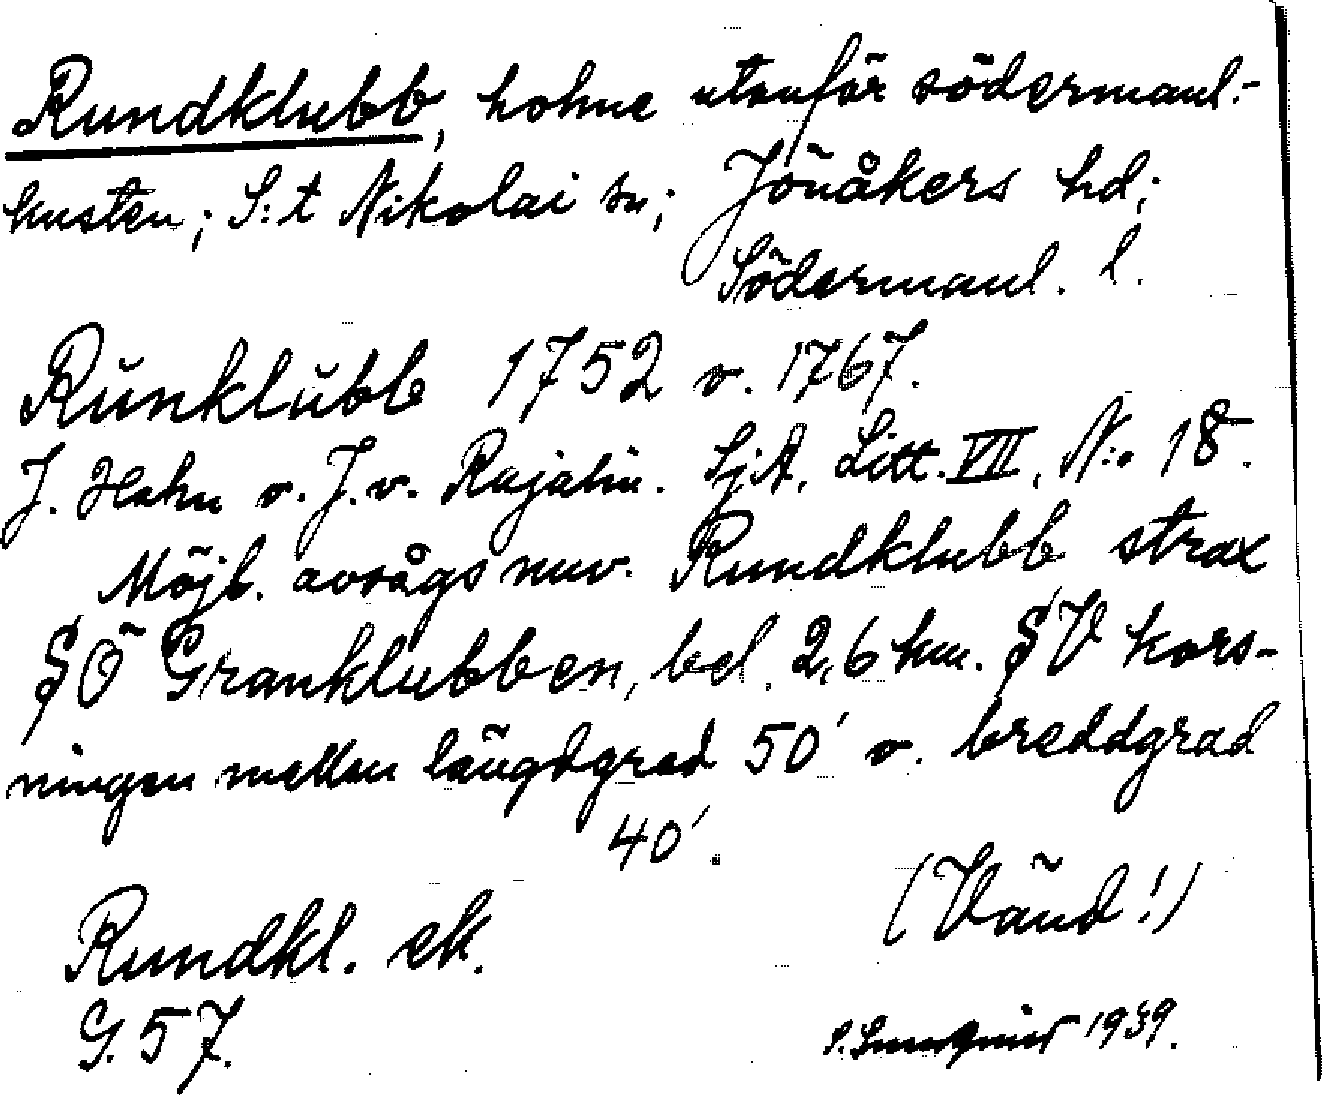 Rundklubb, holme utanför södermanl.-
kusten; S:t Nikolai sn; Jönåkers hd;
Södermanl. l.
Runklubb 1752 o. 1767.
J. Hahn o. J. v. Rajalin. SjA, Litt. VII, N:o 18.
Möjl. avsågs nuv. Rundklubb strax
SÖ Granklubben, bel. 2,6 km. SV kors-
ningen mellan längdgrad 50′ o. breddgrad
40′.
(Vänd!)
Rundkl. ek.
G. 57.
1939.